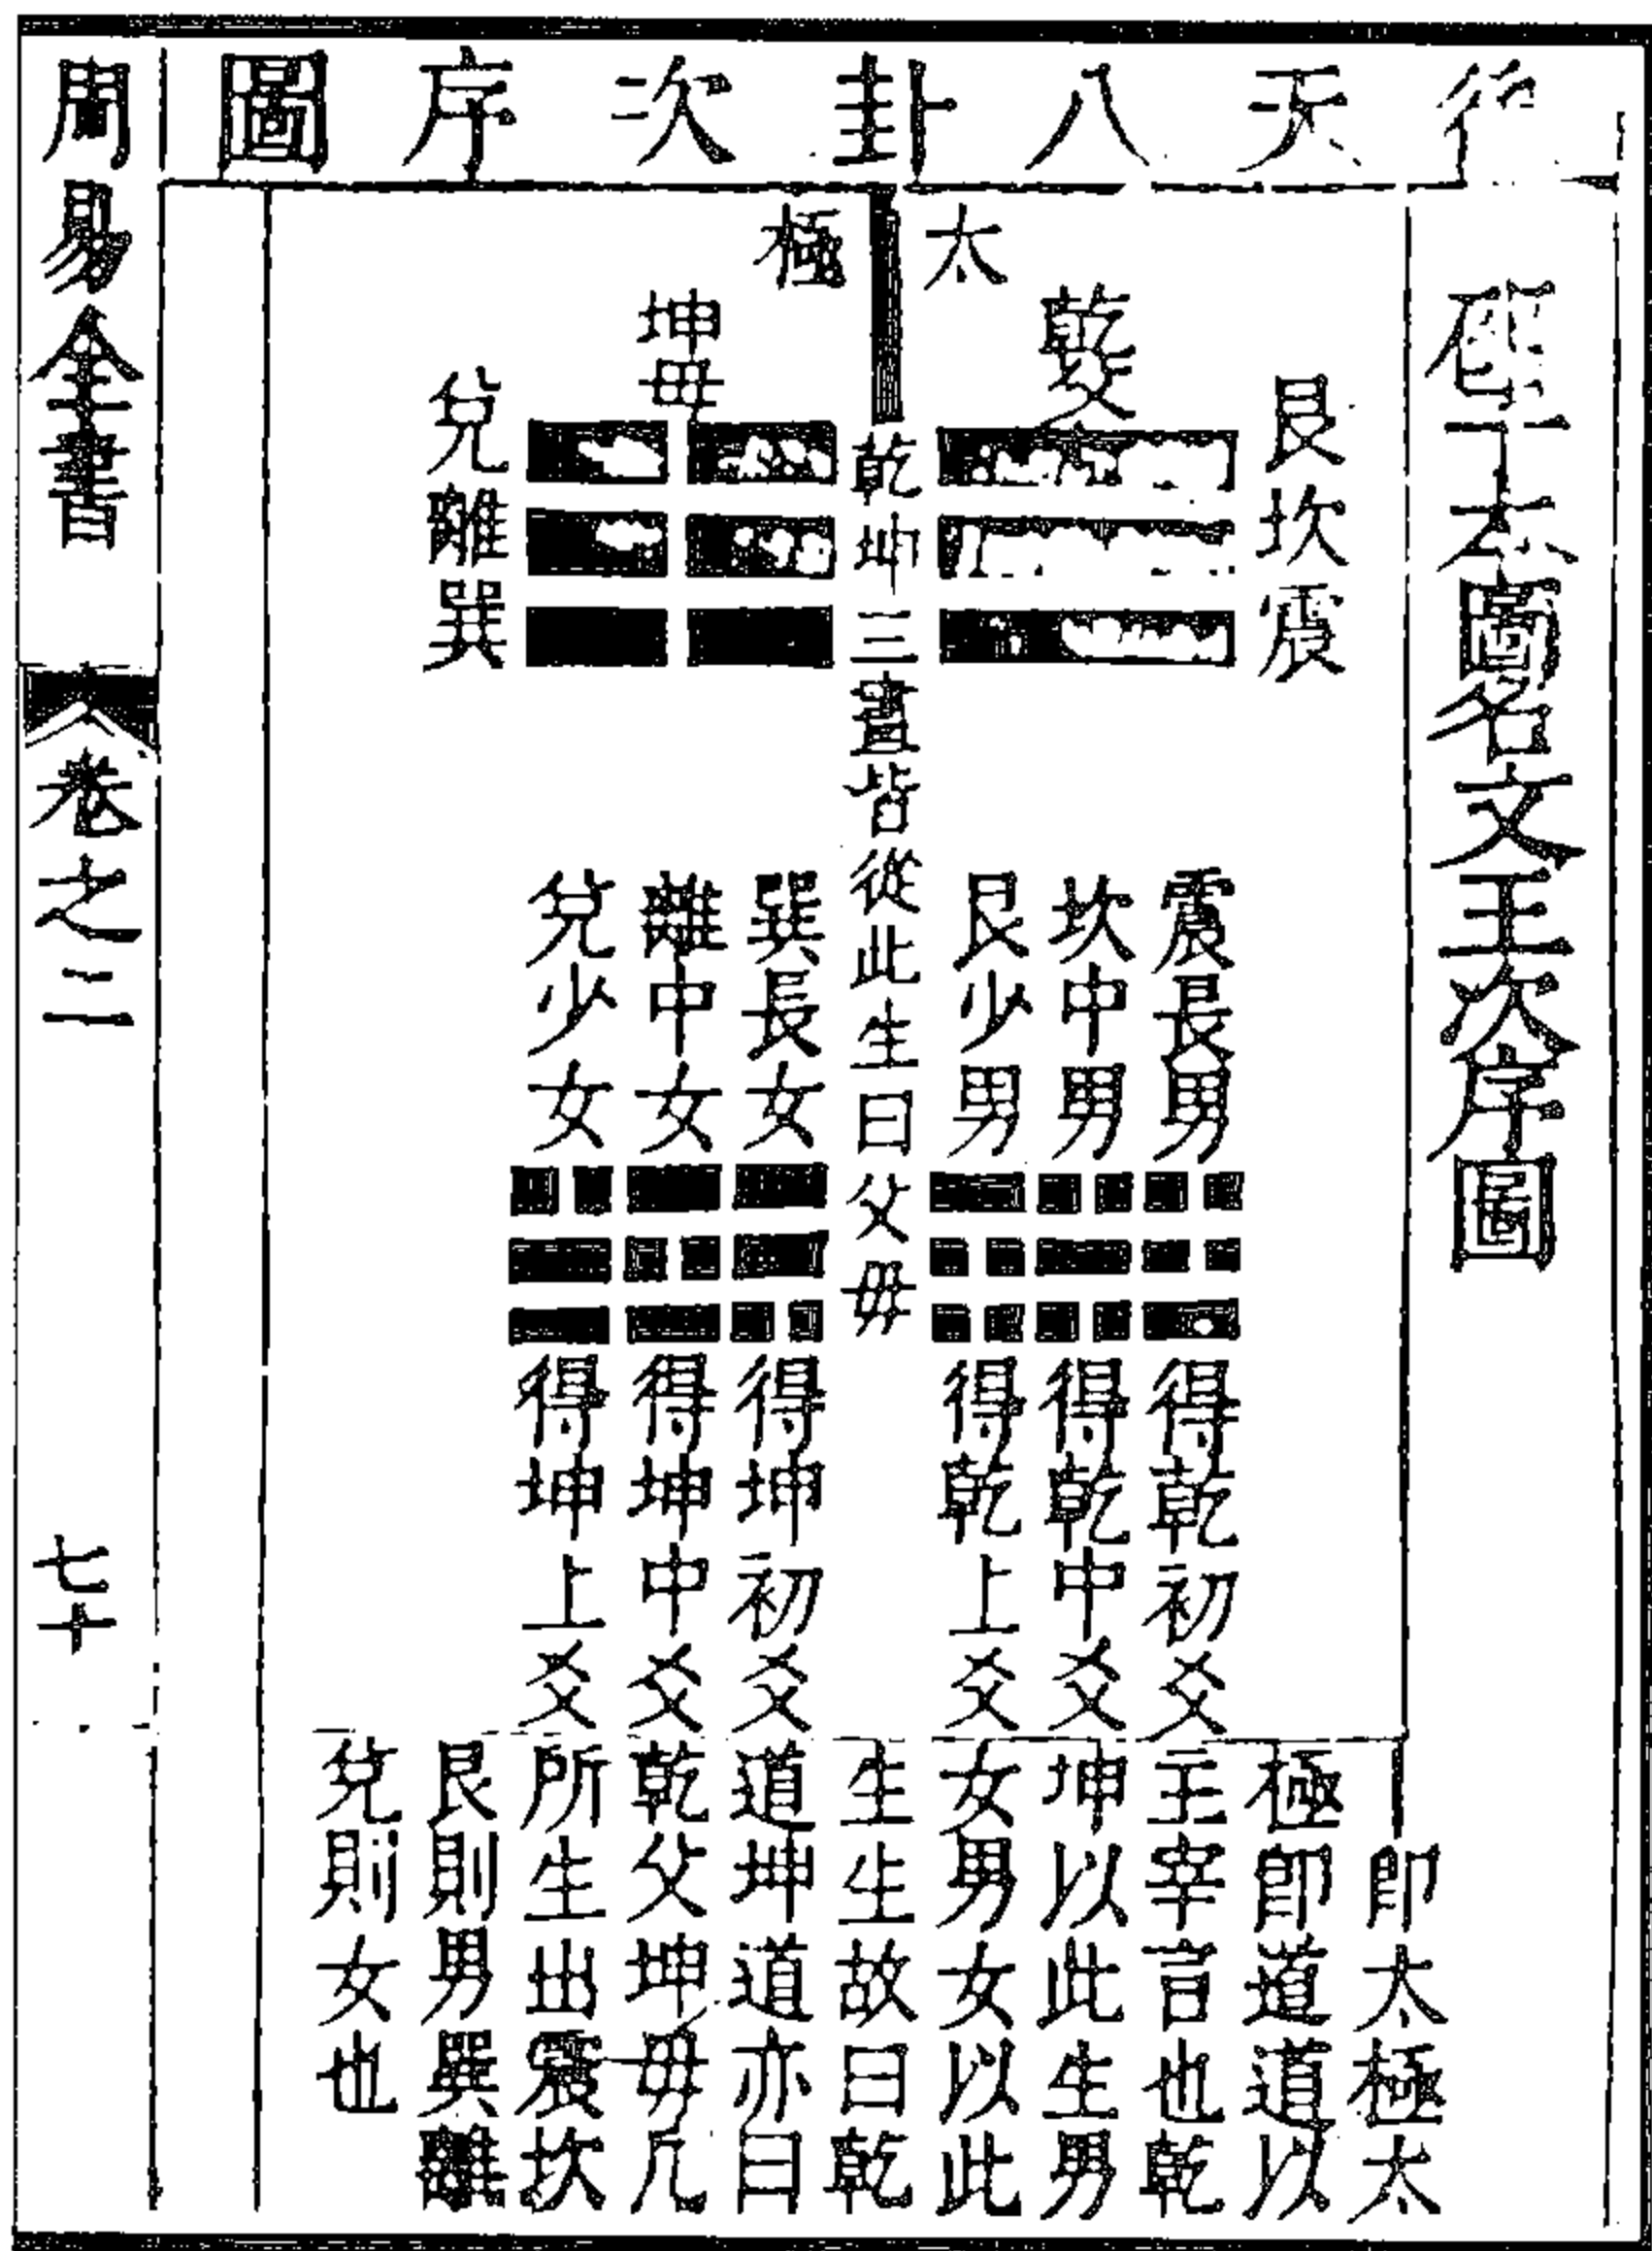 後天八卦次序圖
圖名文王次序圖
太極
乾父
坤毋
艮坎震
兌離巽
乾坤三畫皆從此生曰父毋
震長男
得乾初爻
坎中男
得乾中爻
艮少男
得乾上爻
巽長女
得坤初爻
離中女
得坤中爻
兌少女
得坤上爻
丨即太極太
極即道道以
主宰言也乾
坤以此生男
女男女以此
生生故曰乾
道坤道亦曰
乾父坤毋凡
所生出震坎
艮則男巽離
兌則女也
周易全書
卷之二
七十